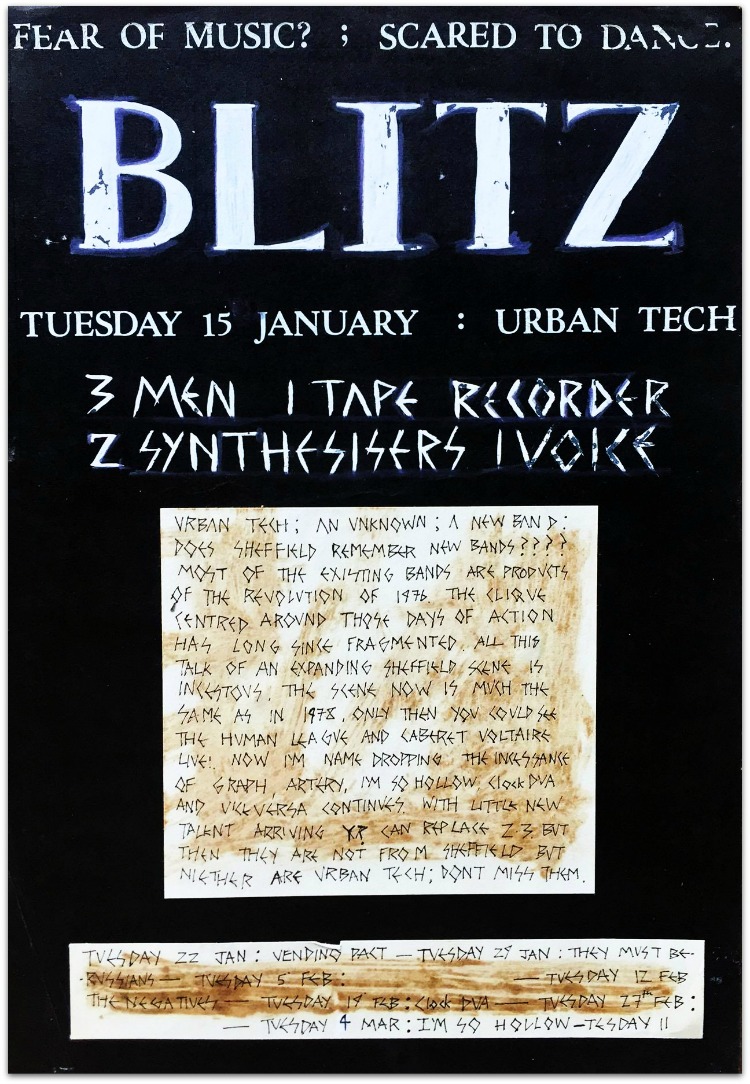 FEAR OF MUSIC? ; SCARED TO DANCE.
BLITZ
TUESDAY 15 JANUARY : URBAN TECH
3 MEN 1 TAPE RECORDER
2 SYNTHESISERS 1 VOICE
URBAN TECH; AN UNKNOWN; A NEW BAND:
DOES SHEFFIELD REMEMBER NEW BANDS????
MOST OF THE EXISTING BANDS ARE PRODUCTS
OF THE REVOLUTION OF 1976 THE CLIQUE
CENTRED AROUND THOSE DAYS OF ACTION
HAS LONG SINCE FRAGMENTED. ALL THIS
TALK OF AN EXPANDING SHEFFIELD SCENE IS
INCESTOUS. THE SCENE NOW IS MUCH THE
SAME AS IN 1978, ONLY THEN YOU COULD SEE
THE HUMAN LEAGUE AND CABERET VOLTAIRE
LIVE! NOW I'M NAME DROPPING THE INCESSANCE
OF GRAPH, ARTERY, I'M SO HOLLOW, Clock DVA
AND VICEVERSA CONTINUES. WITH LITTLE NEW
TALENT ARRIVING Y? CAN REPLACE 2.3. BUT
THEN THEY ARE NOT FROM SHEFFIELD BUT
NIETHER ARE URBAN TECH; DONT MISS THEM.
TUESDAY 22 JAN : VENDING PACT — TUESDAY 29 JAN : THEY MUST BE-
-RUSSIANS — TUESDAY 5 FEB: — TUESDAY 12 FEB
THE NEGATIVES — TUESDAY 19 FEB : Clock DVA — TUESDAY 27th FEB :
— TUESDAY 4 MAR : I'M SO HOLLOW — TESDAY 11